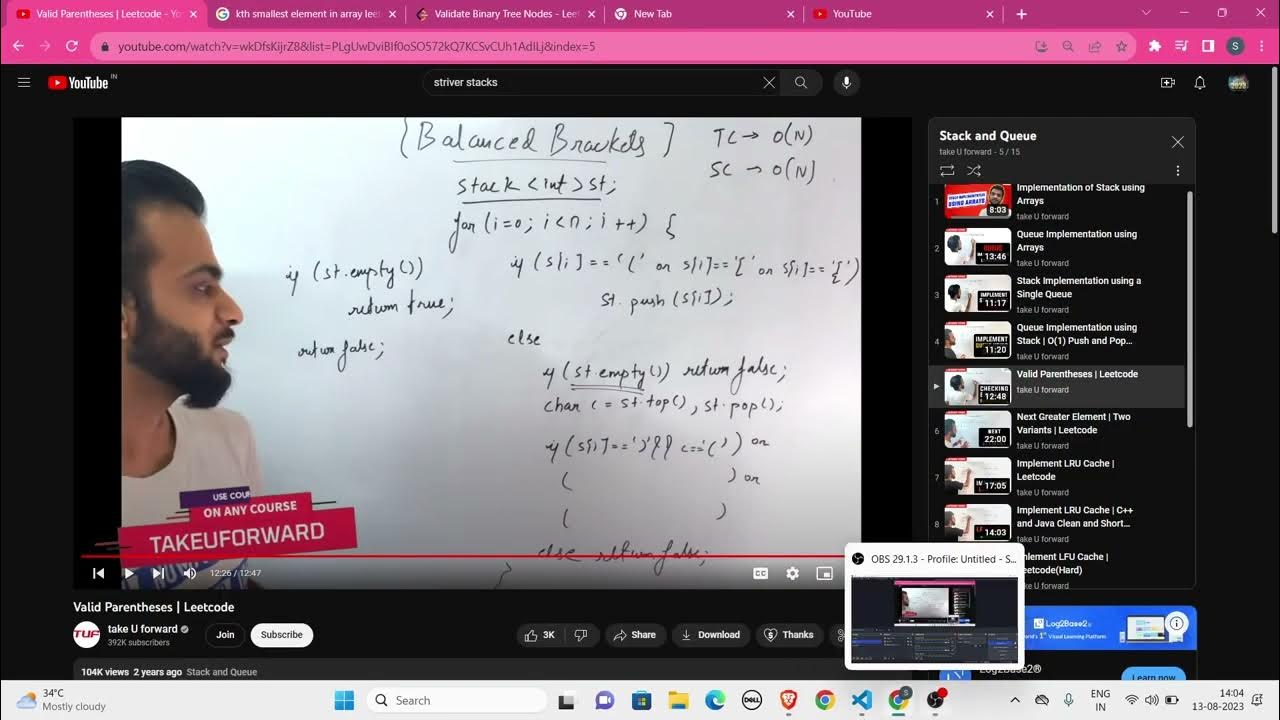 Valid Parentheses | Leetcode - Yo
kth smallest element in array leet
Validate Binary Tree Nodes - Leet
New Tab
YouTube
youtube.com/watch?v=wkDfsKijrZ8&list=PLgUwDviBIf0oSO572kQ7KCSvCUh1AdILj&index=5
S
YouTube IN
striver stacks
[Balanced Brackets]
TC → O(N)
SC → O(N)
stack <int> st;
for (i=0; i<n; i++) {
if (s[i] == '(' or s[i]=='[' or s[i]=='{')
st.push(s[i]);
else
if (st.empty()) return false;
char c = st.top(), st.pop();
if (s[i]==')' && c=='(') or
( ) or
( )
else return false;
}
if (st.empty())
return true;
return false;
USE COU
ON ANY COURSE
TAKEUFORWARD
12:26 / 12:47
CC
Stack and Queue
take U forward - 5 / 15
1
8:03
Implementation of Stack using
Arrays
take U forward
2
13:46
Queue Implementation using
Arrays
take U forward
3
IMPLEMENT
11:17
Stack Implementation using a
Single Queue
take U forward
4
IMPLEMENT
11:20
Queue Implementation using
Stack | O(1) Push and Pop...
take U forward
CHECKING
12:48
Valid Parentheses | Leetcode
take U forward
6
NEXT
22:00
Next Greater Element | Two
Variants | Leetcode
take U forward
7
17:05
Implement LRU Cache |
Leetcode
take U forward
8
14:03
Implement LRU Cache | C++
and Java Clean and Short...
take U forward
mplement LFU Cache |
eetcode(Hard)
take U forward
OBS 29.1.3 - Profile: Untitled - S...
Valid Parentheses | Leetcode
TUF
take U forward
392K subscribers
Join
Subscribe
3K
Share
Download
Thanks
104K views 2 years ago Stack and Queue
Log2Base2®
World's 1st Visual Learning Platform
Log2Base2®
Learn now
34°C
Mostly cloudy
Search
DELL
S
ENG
IN
14:04
13-08-2023